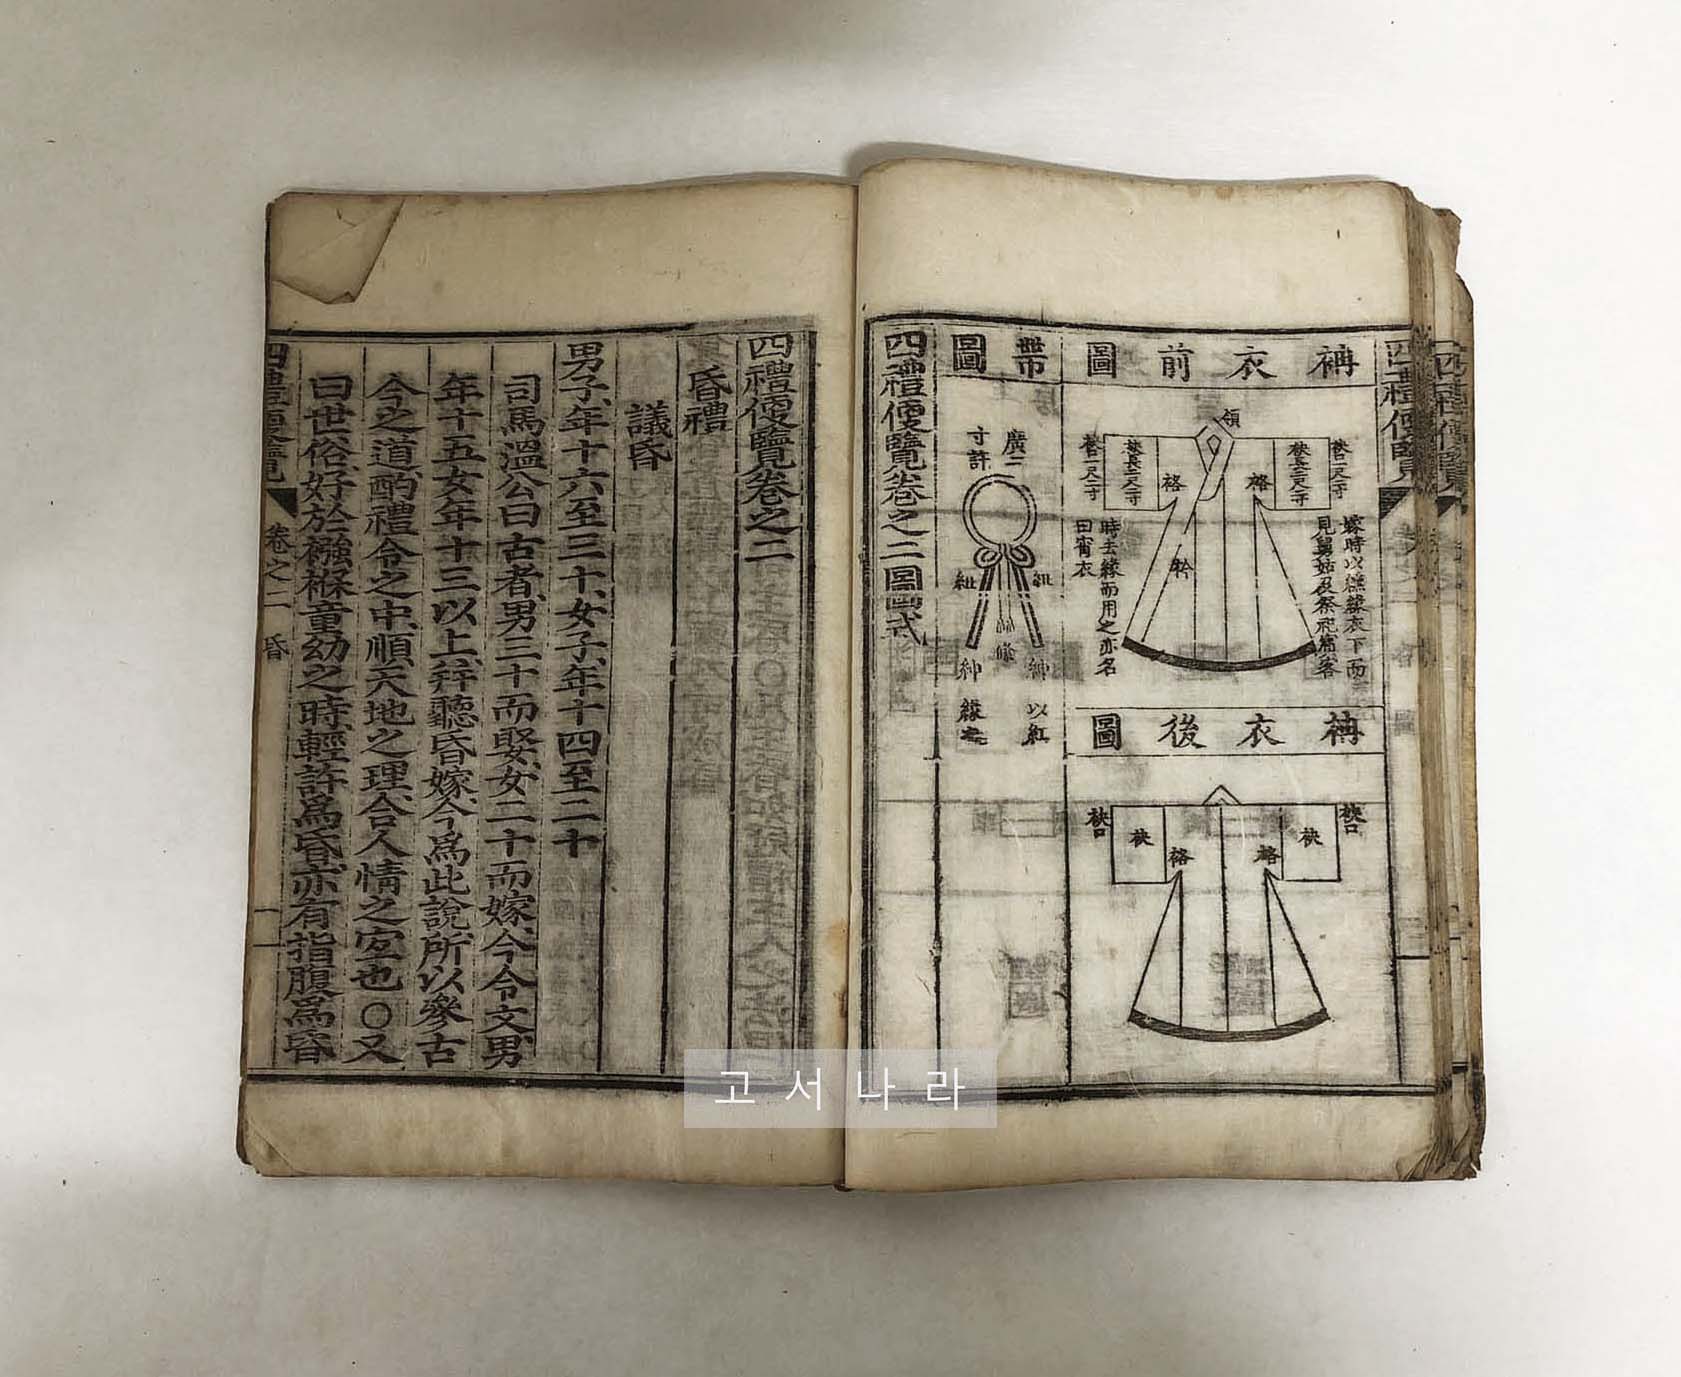 四禮便覽
袡衣前圖
領
袪一尺二寸
袂長二尺二寸
袼
袼
袂長二尺二寸
袪一尺二寸
衿
嫁時以纁緣衣下而
見舅姑及祭祀賓客
時去緣而用之亦名
曰宵衣
袡衣後圖
袂口
袂
袼
袼
袂
袂口
帶圖
廣二
寸許
紐
紐
紳
紳
絛
以紅
緣之
四禮便覽卷之二圖式
四禮便覽卷之二
昏禮
議昏
男子年十六至三十女子年十四至二十
司馬溫公曰古者男三十而娶女二十而嫁今令文男
年十五女年十三以上幷聽昏嫁今爲此說所以參古
今之道酌禮令之中順天地之理合人情之宜也○又
曰世俗好於襁褓童幼之時輕許爲昏亦有指腹爲昏
四禮便覽
卷之二 昏
一
고서나라